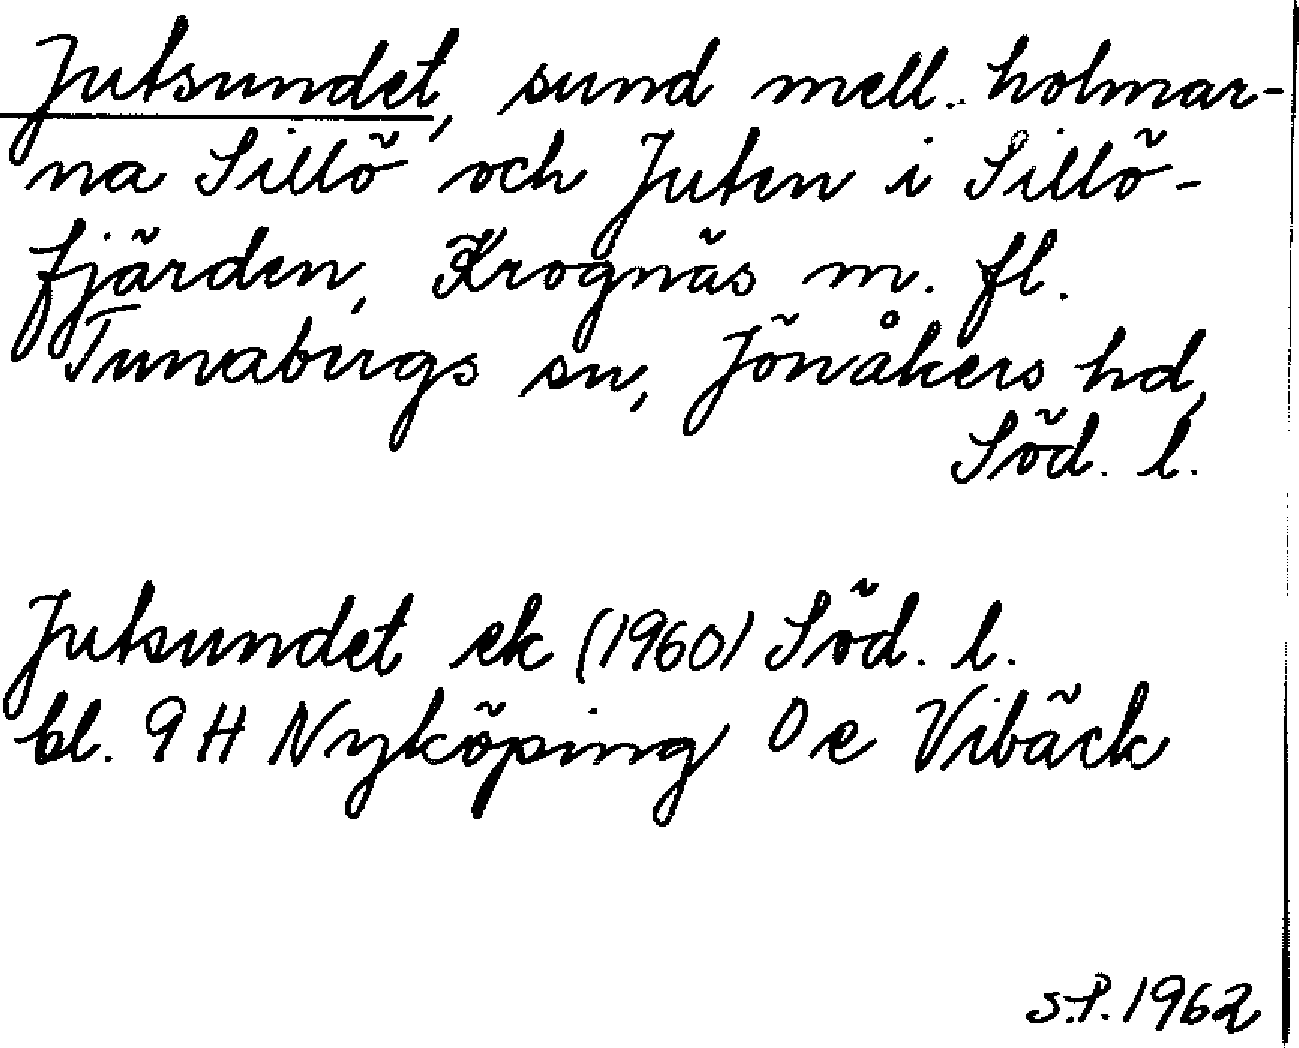 Jutsundet, sund mell. holmar-
na Sillö och Juten i Sillö-
fjärden, Krognäs m. fl.
Tunabergs sn, Jönåkers hd,
Söd. l.
Jutsundet ek (1960) Söd. l.
bl. 9 H Nyköping 0 e Vibäck
S.P. 1962